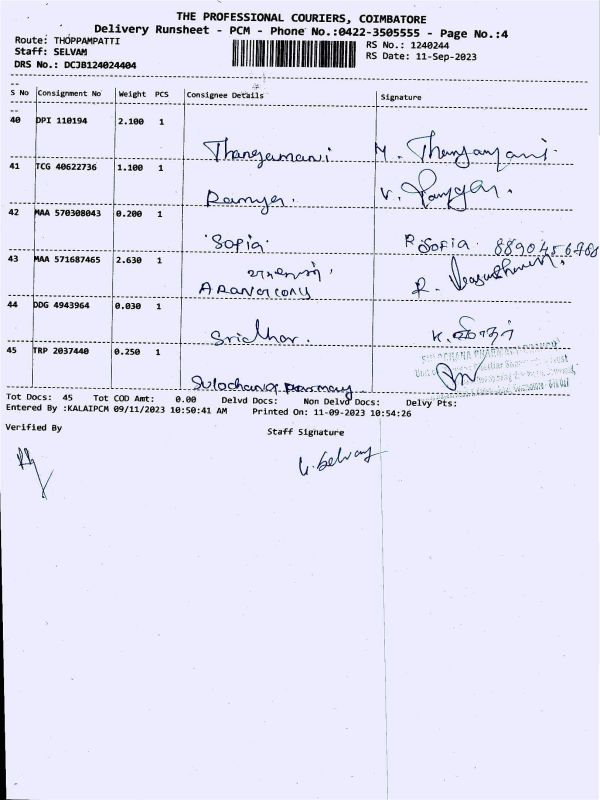 THE PROFESSIONAL COURIERS, COIMBATORE
Delivery Runsheet - PCM - Phone No.:0422-3505555 - Page No.:4
Route: THOPPAMPATTI
Staff: SELVAM
DRS No.: DCJB124024404
RS No.: 1240244
RS Date: 11-Sep-2023
S No Consignment No Weight PCS Consignee Details Signature
40 DPI 110194 2.100 1
Thangamani M. Thangamani
41 TCG 40622736 1.100 1
Ramya. V.
42 MAA 570308043 0.200 1
Sofia R. Sofia
43 MAA 571687465 2.630 1
R.
44 DDG 4943964 0.030 1
Sridhar. K. ஸ்ரீதர்
45 TRP 2037440 0.250 1
Sulochana parmacy
SULOCHANA
Tot Docs: 45 Tot COD Amt: 0.00 Delvd Docs: Non Delvd Docs: Delvy Pts:
Entered By :KALAIPCM 09/11/2023 10:50:41 AM Printed On: 11-09-2023 10:54:26
Verified By Staff Signature
Selvam